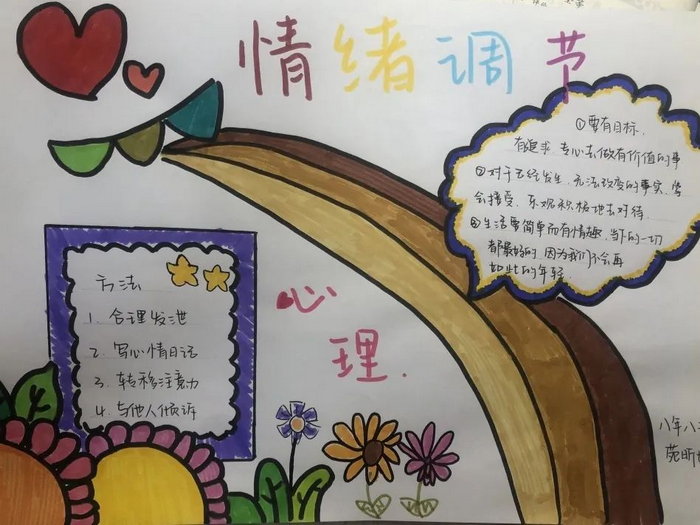 情绪调节
①要有目标、
有追求,专心去做有价值的事
②对于已经发生、无法改变的事实,学
会接受,乐观积极地去对待.
③生活要简单而有情趣,当下的一切
都最好的,因为我们不会再
如此的年轻.
方法
1. 合理发泄
2. 写心情日记
3. 转移注意力
4. 与他人倾诉
心
理.
八年八